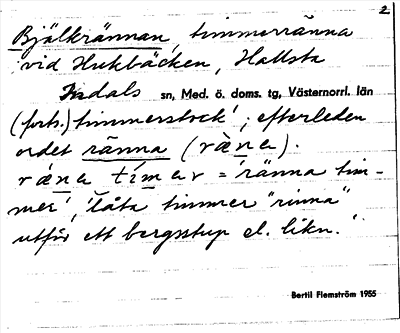 2
Bjälkrännan, timmerränna
vid Hukbäcken, Hallsta
Indals sn, Med. ö. doms. tg, Västernorrl. län
(forts.) timmerstock'; efterleden
ordet ränna (ràn̲a).
rána tímar = 'ränna tim-
mer', 'låta timmer "rinna"
utför ett bergstup el. likn.'
Bertil Flemström 1955